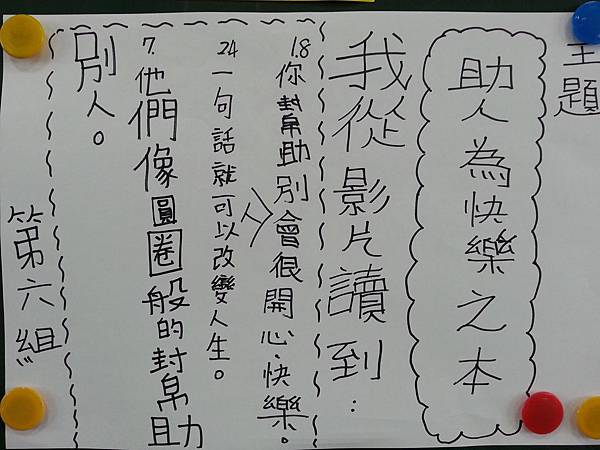 主題
助人為快樂之本
我從影片讀到：
1.8你幫助別人會很開心、快樂。
24一句話就可以改變人生。
7.他們像圓圈般的幫助
別人。
第六組